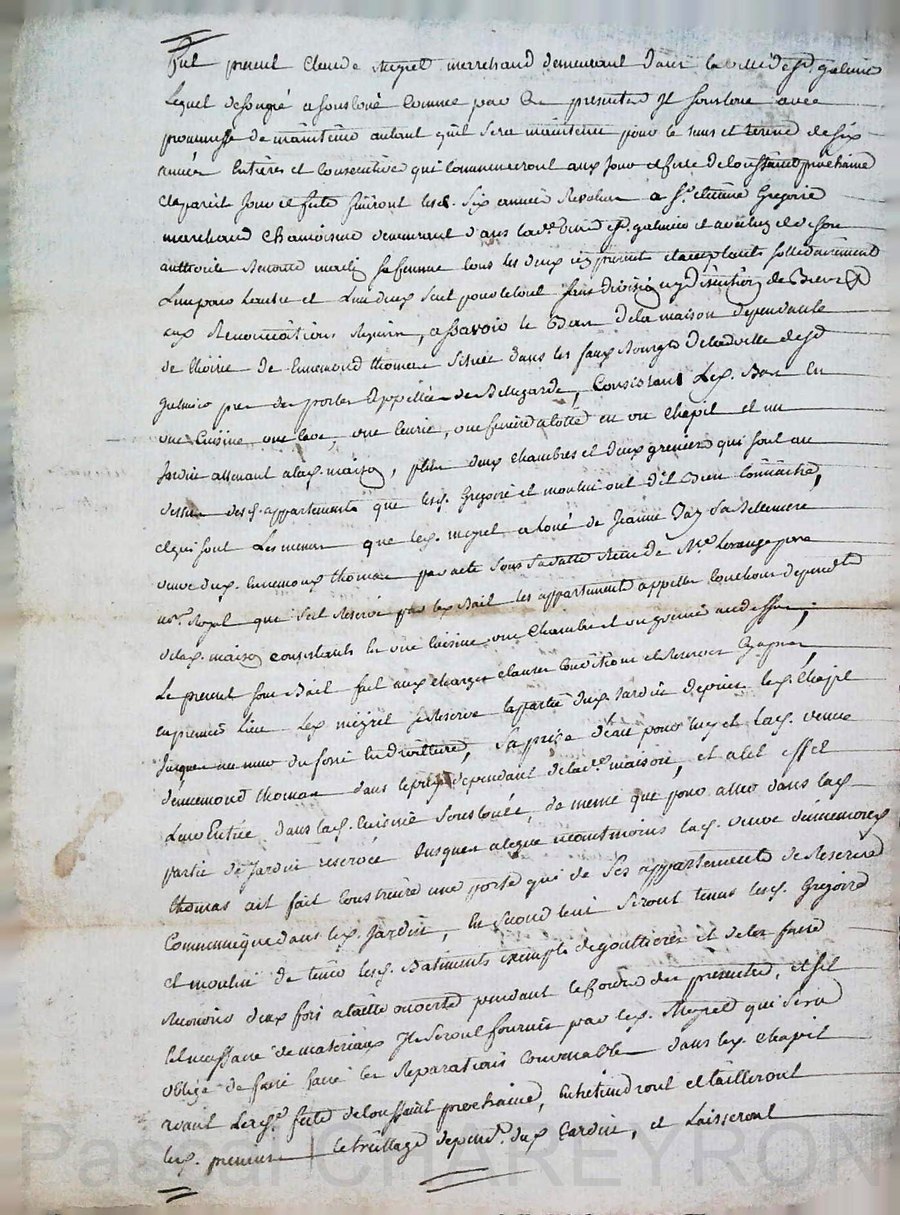 Fut present Claude Meyrel marchand demeurant dans la ville de St. galmier
Lequel de son gré a sousloué comme par les presentes Il sousloue avec
promesse de maintenir autant quil sera maintenu pour le tems et terme de six
années Entieres et Consecutives qui commenceront aux jour et fete de toussaint prochaine
et a pareil jour et fete finiront lesd. six années Revolues a Sr. etienne Gregoire
marchand Chamoiseur demeurant dans lad. ville de St. galmier et a
authorité moulin sa femme tous les deux icy presents et acceptants sollidairement
L'un pour l'autre et L'un d'eux seul pour le tout sans division ny discution de Biens
aux Renonciations Requises, a sçavoir le Bas de la maison dependante
de l'hoirie de Ennemond thomas Située dans les faux Bourgs de la ville de St
galmier pres des portes appellée de Bellegarde, Consistant Led. Bas En
une Cuisine, une cave, une écurie, une feniere a coté ou un chapit et un
Jardin attenant a lad. maison, plus deux chambres et deux greniers qui sont au
dessus desd. appartements que lesd. Gregoire et moulin ont dit Bien Connaitre,
et qui sont Les mêmes que led. meyrel a loué de Jeanne
veuve dud. Ennemond thomas par acte sous
no.re Royal que s'est Reservé par led. Bail les appartements appellés dependts
de lad. maison consistants En une Cuisine une Chambre et un grenier au dessus;
Le present sous Bail fait aux charges clauses Conditions et Reserves
en premier Lieu Led. meyrel se Reserve la partie dud. Jardin depuis led. chapit
Jusques au mur du fond En droiture, sa prise d'eau pour luy et lad. veuve
d'ennemond thomas dans le puy dependant de lad. maison, et a cet effet
Leur Entrée dans lad. Cuisine Souslouée, de meme que pour aller dans lad.
partie de Jardin reservée Jusques a ce que neantmoins lad. veuve d'ennemond
thomas ait fait Construire une porte qui de ses appartements de Reserve
Communique dans led. Jardin, En Second lieu Seront tenus lesd. Gregoire
et moulin de tenir lesd. Batiments exempts de gouttieres et de les faire
Recouvrir deux fois a taille ouverte pendant le Cours des presentes, et s'il
est necessaire de materiaux Ils Seront fournis par led. Meyrel qui sera
obligé de faire faire les Reparations Convenables dans led. chapit
avant Lad. fete de toussaint prochaine, Entretiendront et tailleront
lesd. preneurs Le treillage depent. dud. Jardin, et Laisseront
Pascal CHAREYRON